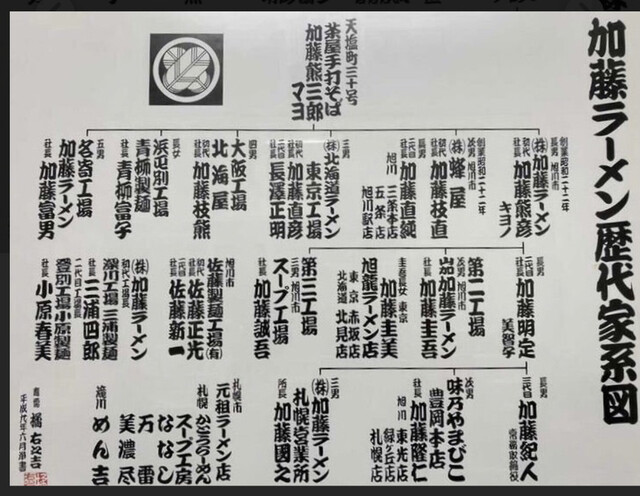 加藤ラーメン歴代家系図
天塩町三十号
茶屋手打そば
加藤熊三郎
マヨ
創業昭和二十二年
長男 旭川市
(株)加藤ラーメン
初代 社長 加藤熊彦
キヨノ
創業昭和二十二年
次男 旭川市
(株)蜂屋
初代 社長 加藤枝直
長男
二代目 社長 加藤直純
旭川 三条本店
五条店
旭川駅店
三男
(株)北海道ラーメン
東京工場
初代 社長 加藤直彦
二代目 社長 長澤正明
四男
大阪工場
北海屋
初代 社長 加藤枝熊
長女
浜頓別工場
青柳製麺
社長 青柳富子
五男
名寄工場
加藤ラーメン
社長 加藤富男
長男
二代目 社長 加藤明定
美智子
第二工場
次男 旭川市
加藤ラーメン
社長 加藤圭吾
圭吾長女 東京
加藤圭美
旭龍ラーメン店
東京 赤坂店
北海道 北見店
第三工場
三男 旭川市
スープ工場
社長 加藤誠吾
旭川市
佐藤製麺工場(有)
初代 社長 佐藤正光
二代目 社長 佐藤新一
(株)加藤ラーメン
初代工場長
深川工場 三浦製麺
社長 三浦四郎
二代目工場長
登別工場 小原製麺
社長 小原春美
長男
三代目 加藤紀人
常務取締役
次男
味乃やまびこ
豊岡本店
社長 加藤隆仁
旭川 東光店
緑ヶ丘店
札幌店
三男
(株)加藤ラーメン
札幌営業所
所長 加藤國之
札幌市
元祖ラーメン店
札幌 かとうらーめん
スープ工房
ななし
万雷
美濃尽
滝川 めん吉
平成九年六月浄書